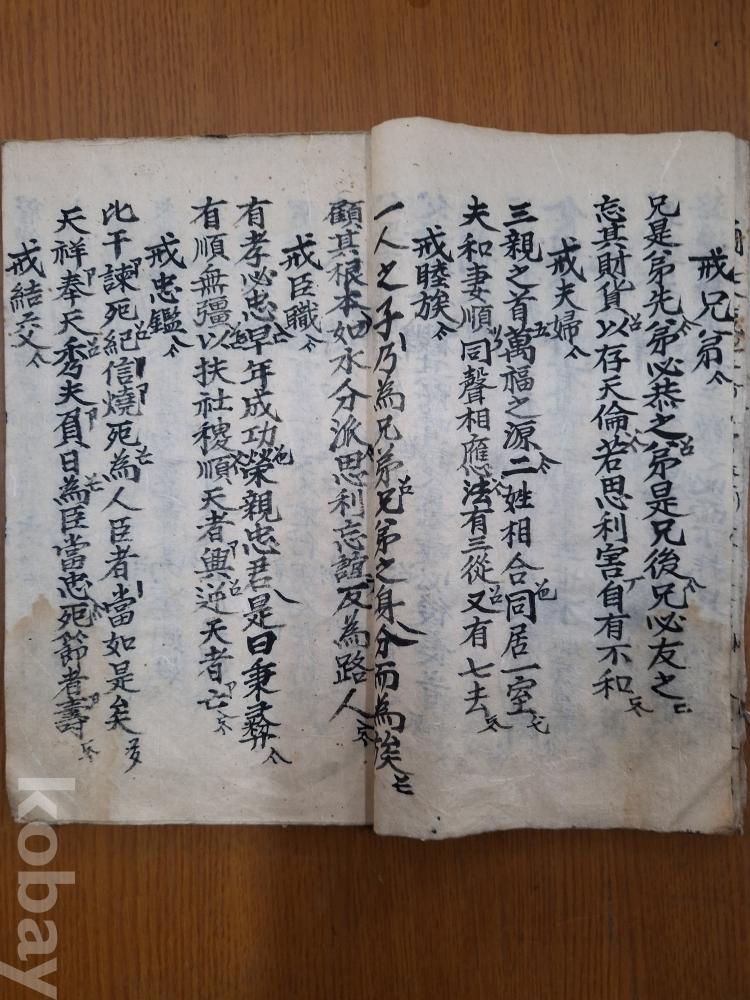 戒兄弟
兄是弟先弟必恭之弟是兄後兄必友之
忘其財貨以存天倫若思利害自有不和
戒夫婦
三親之首萬福之源二姓相合同居一室
夫和妻順同聲相應法有三從又有七去
戒睦族
一人之子乃為兄弟兄弟之身分而為族
顧其根本如水分派思利忘誼反為路人
戒臣職
有孝必忠早年成功榮親忠君是曰秉彛
有順無彊以扶社稷順天者興逆天者亡
戒忠鑑
比干諫死紀信燒死為人臣者當如是矣
天祥奉天秀夫負日為臣當忠死節者壽
戒結交
kobay